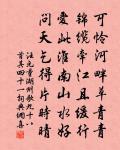 可怜河畔草青青
锦缆牵江且缓行
爱此淮南山水好
问天乞得片时晴
汪元量湖州歌九十八
首其四十一祠典偶集